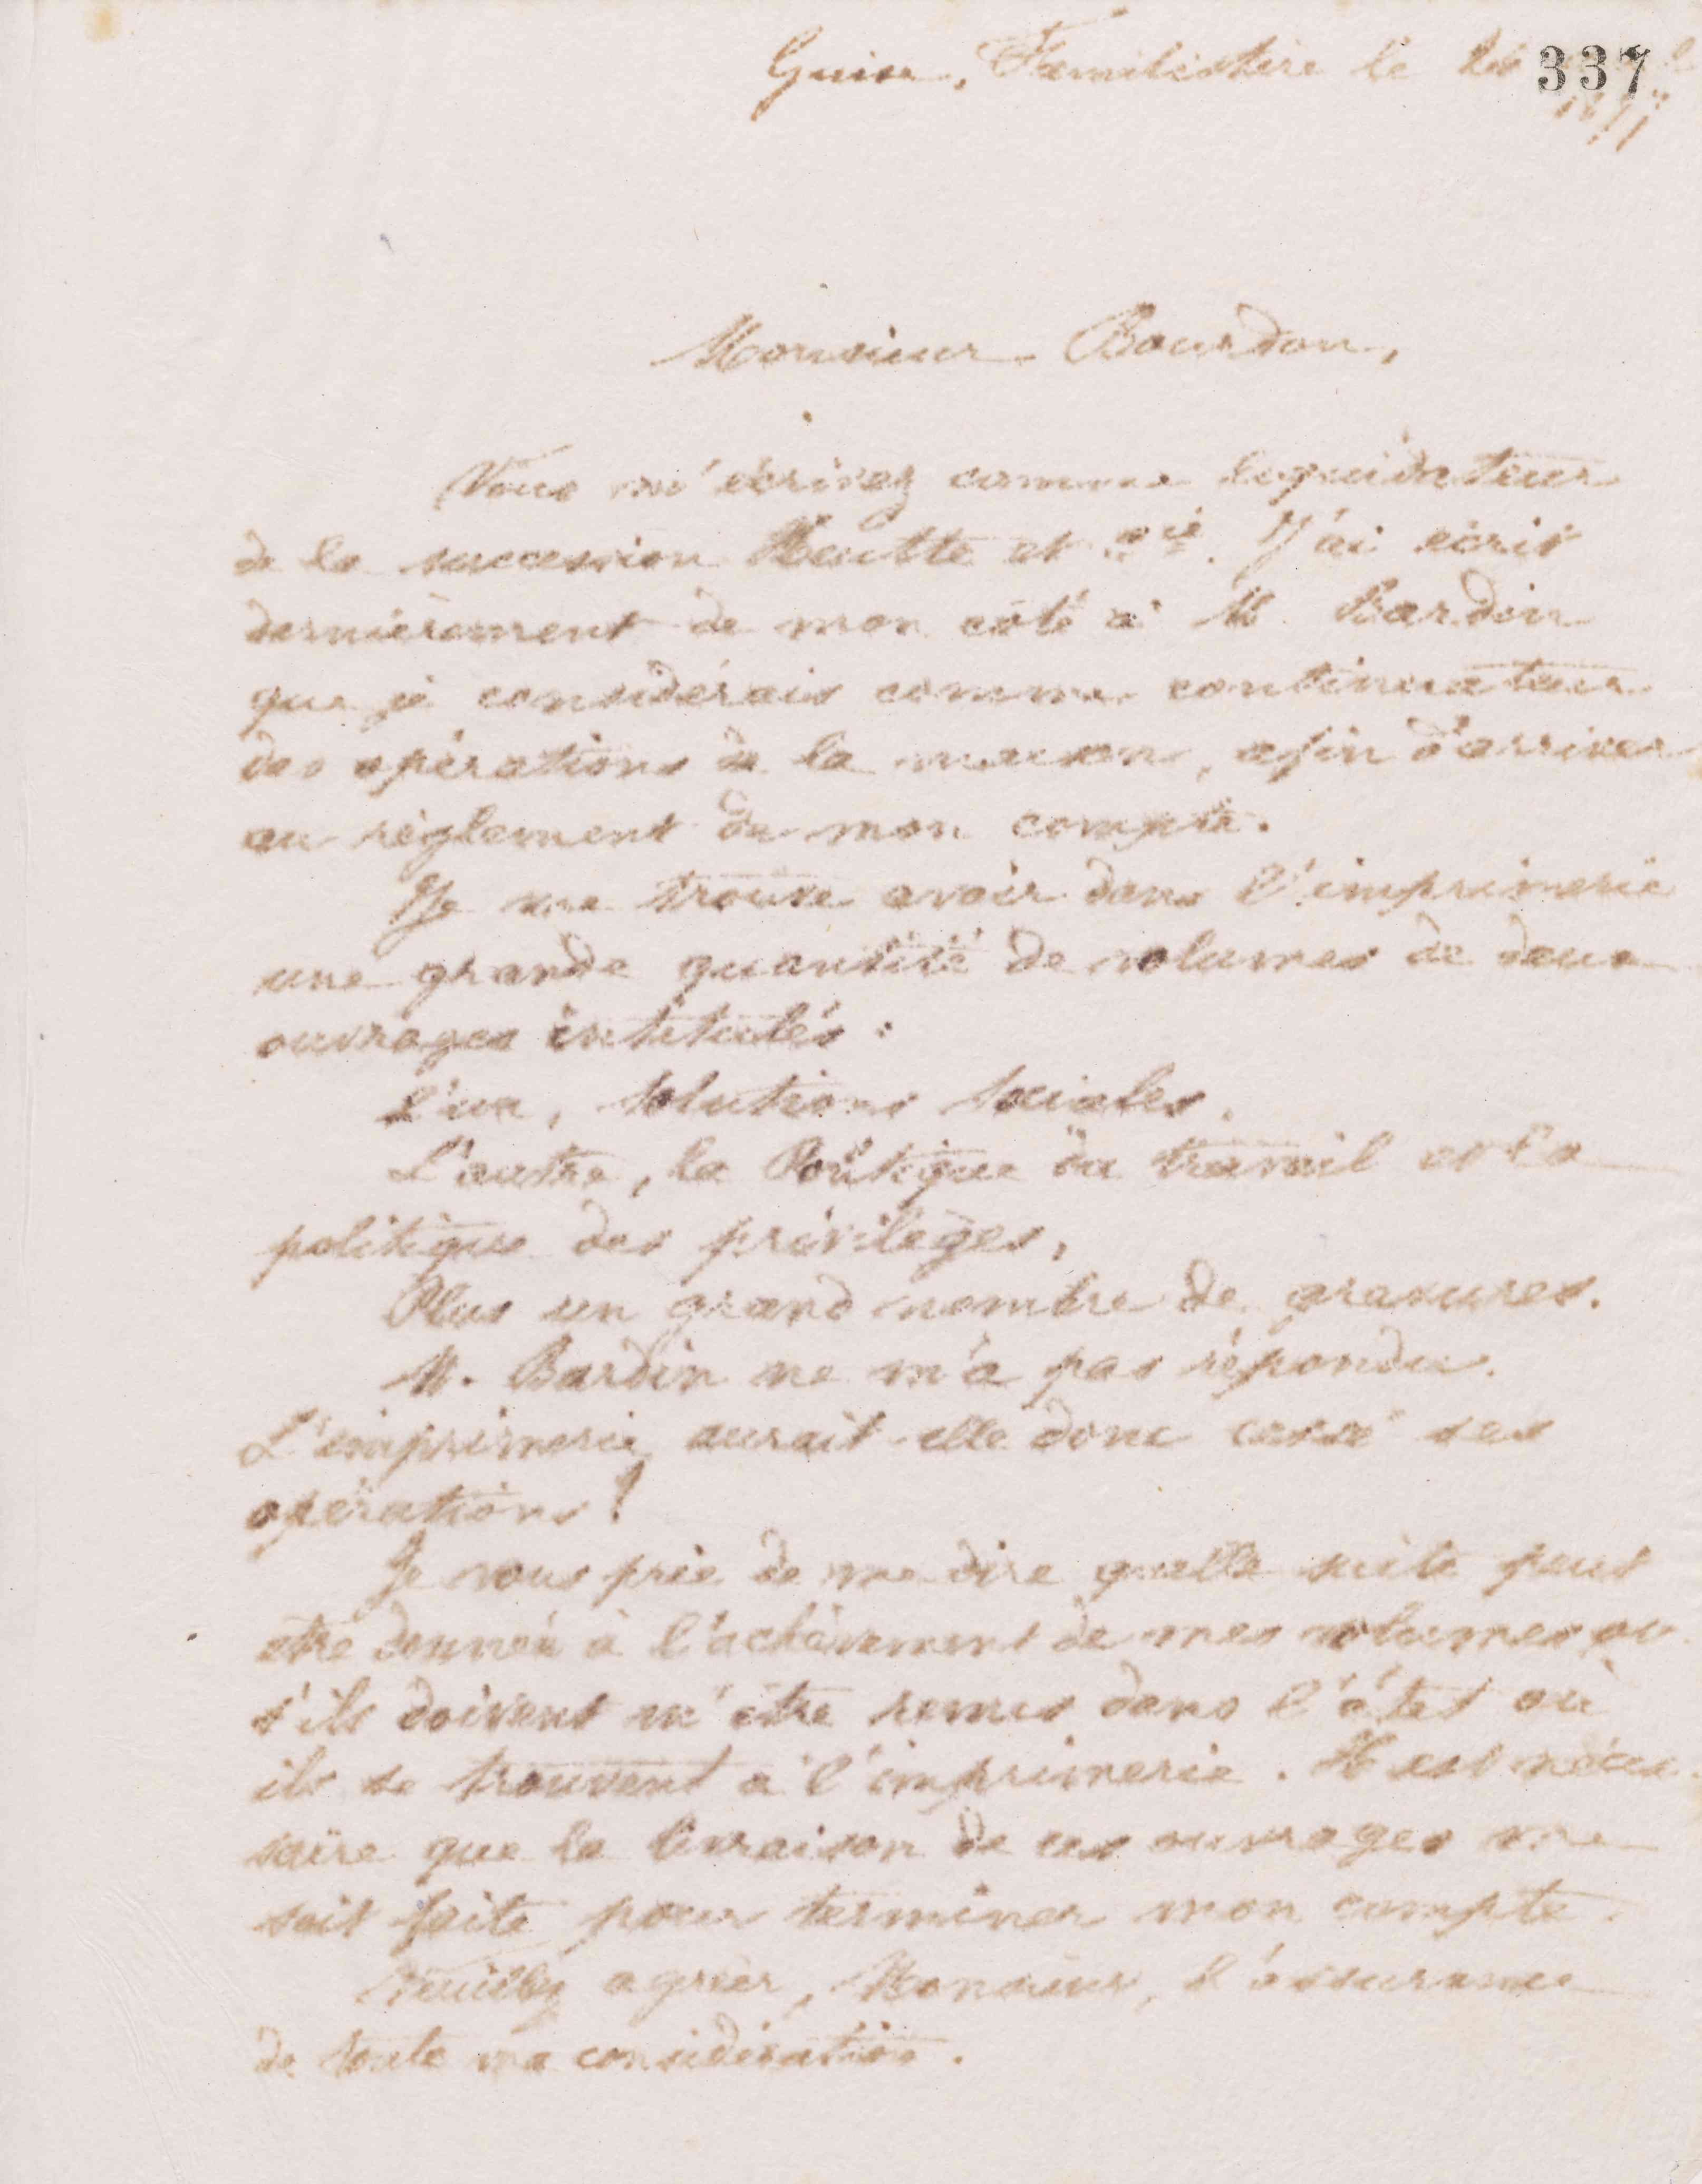 Guise, Familistère le
337
Monsieur Bourdon,
Vous m'écrivez comme liquidateur
de la succession Heutte et Cie. J'ai écrit
dernièrement de mon côté à M. Bardin
que je considérais comme continuateur
des opérations de la maison, afin d'arriver
au règlement de mon compte.
Je me trouve avoir dans l'imprimerie
une grande quantité de volumes de deux
ouvrages intitulés :
L'un, Solutions Sociales.
L'autre, la Politique du travail et la
politique des privilèges,
Plus un grand nombre de gravures.
M. Bardin ne m'a pas répondu.
L'imprimerie aurait elle donc cessé ses
opérations ?
Je vous prie de me dire quelle suite peut
être donnée à l'achèvement de mes volumes ou
s'ils doivent m'être remis dans l'état où
ils se trouvent à l'imprimerie. Il est néces-
saire que la livraison de ces ouvrages me
soit faite pour terminer mon compte.
Veuillez agréer, Monsieur, l'assurance
de toute ma considération.